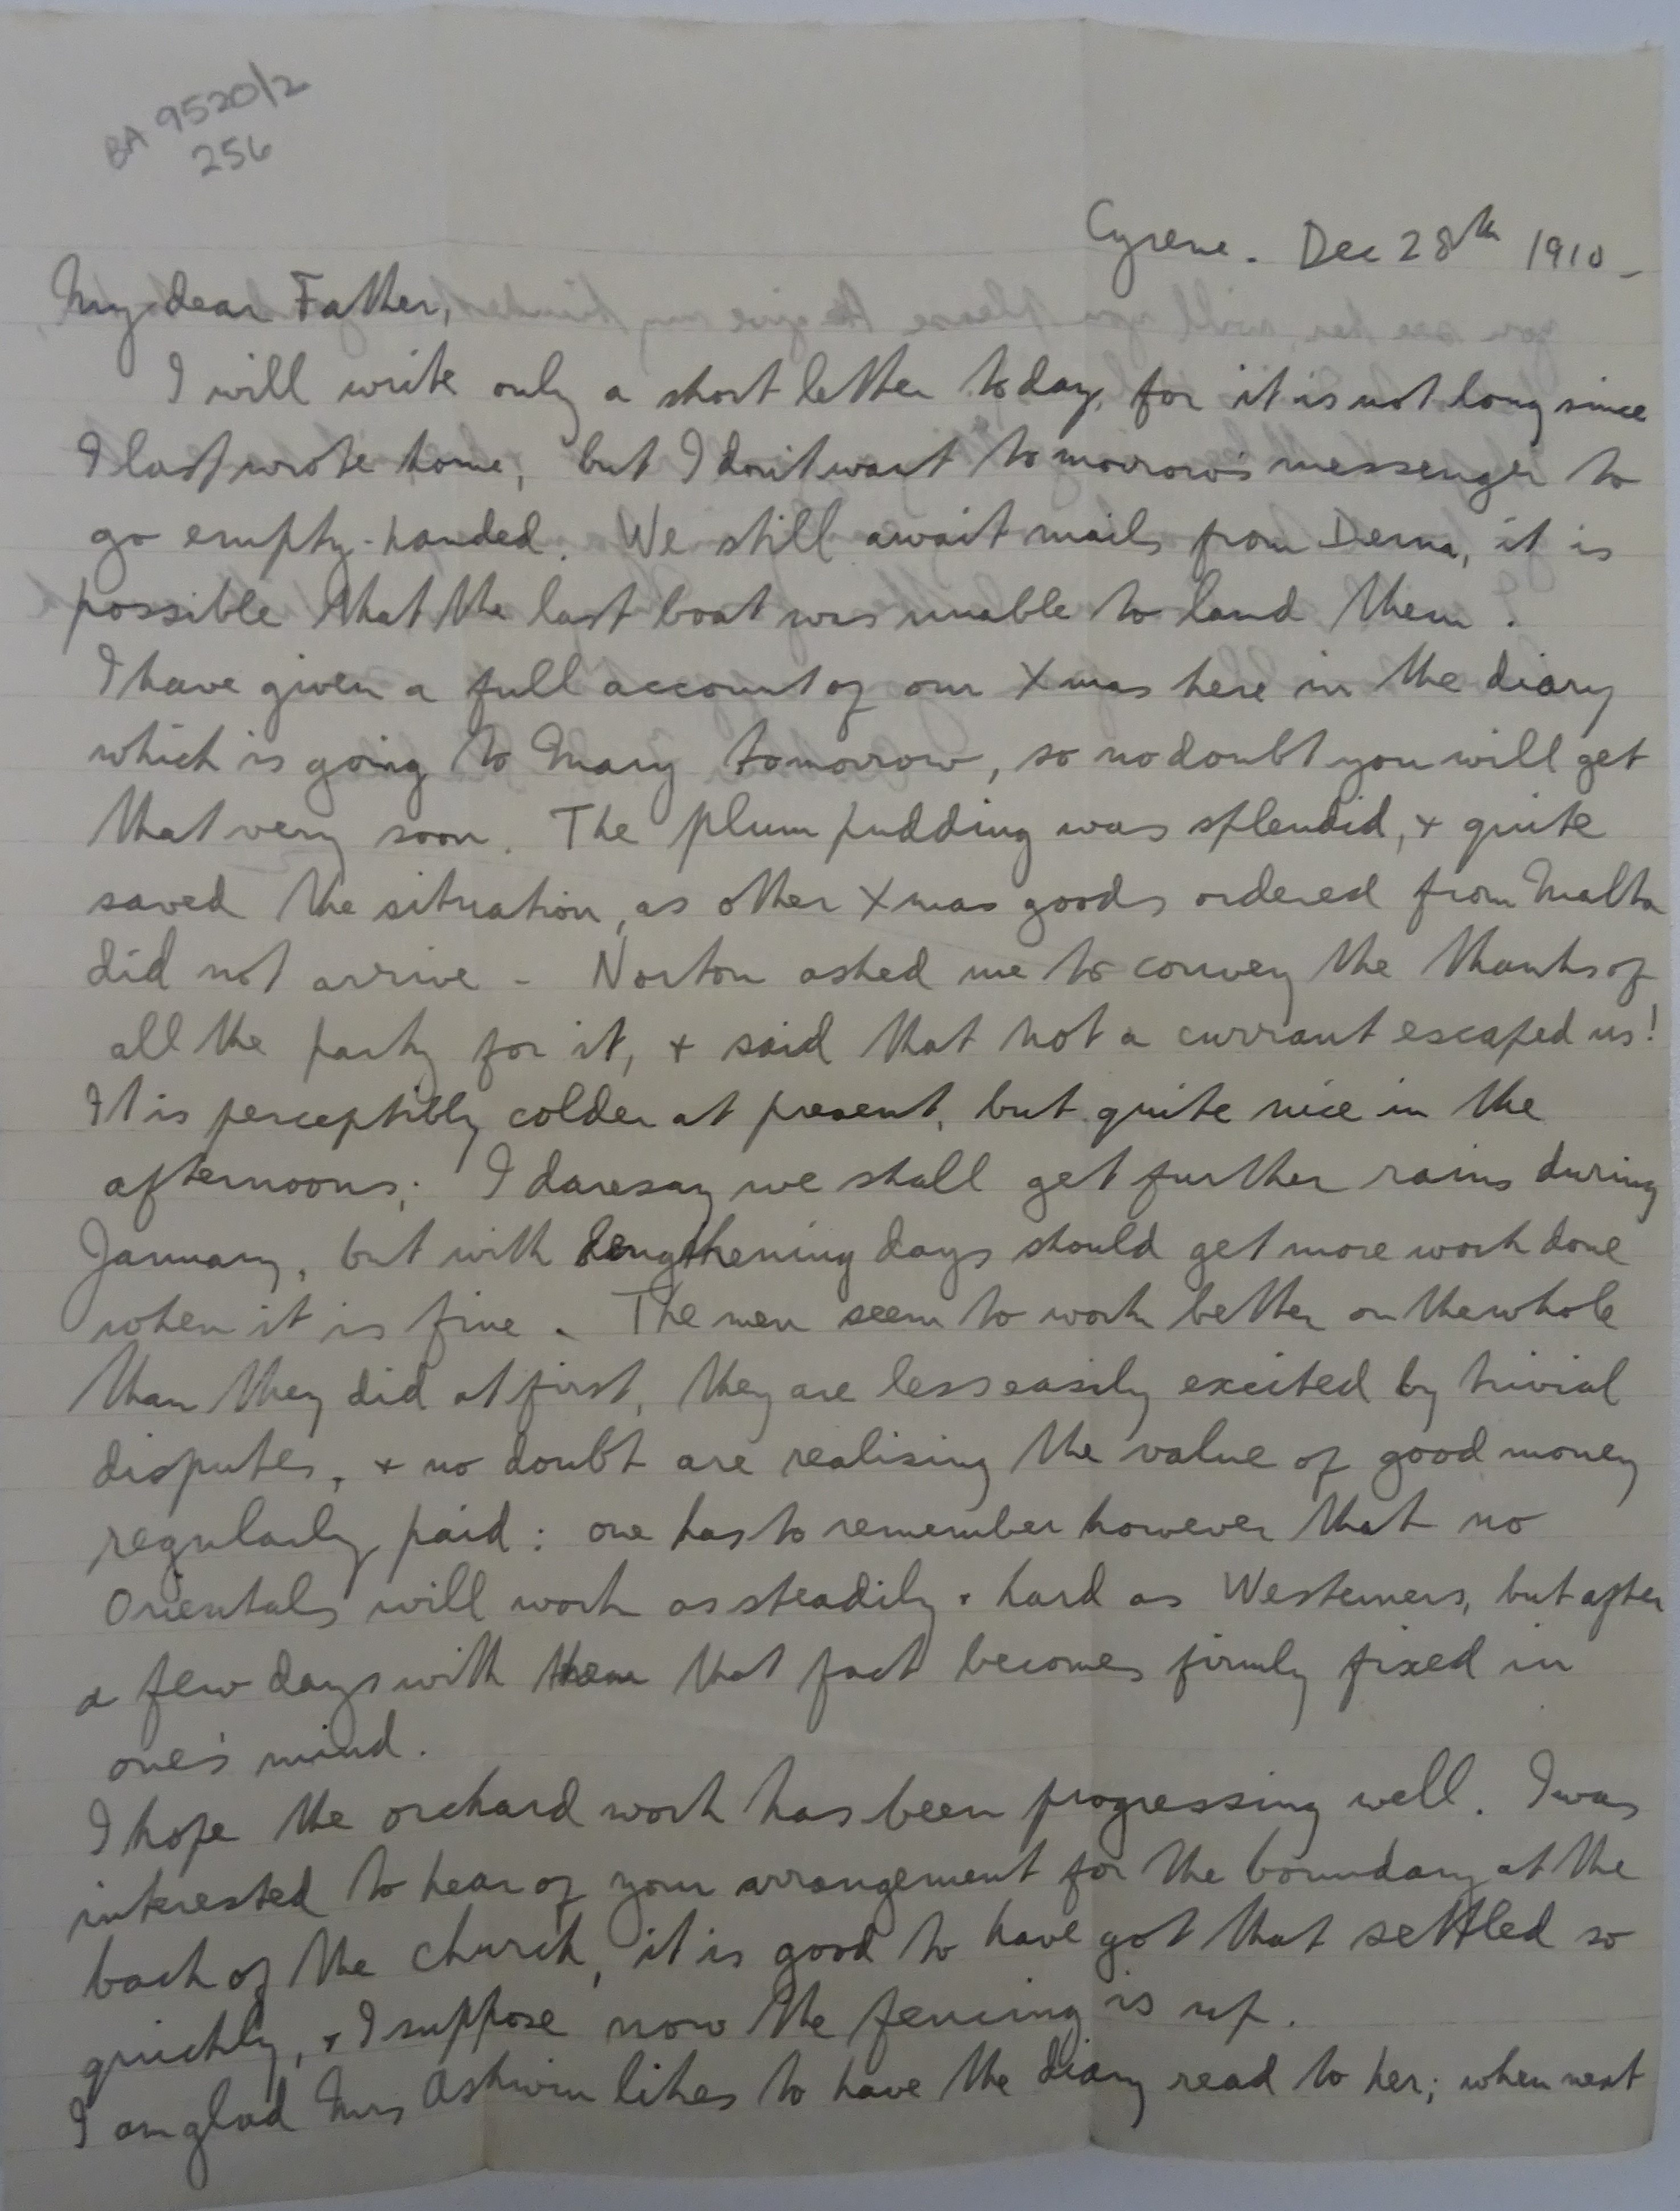 BA 9520/2
256
Cyrene. Dec 28th 1910 -
My dear Father,
I will write only a short letter today, for it is not long since
I last wrote home, but I don't want tomorrow's messenger to
go empty-handed. We still await mails from Derna, it is
possible that the last boat was unable to land them.
I have given a full account of our Xmas here in the diary
which is going to Mary tomorrow, so no doubt you will get
that very soon. The plum pudding was splendid, + quite
saved the situation, as other Xmas goods ordered from Malta
did not arrive - Norton asked me to convey the thanks of
all the party for it, + said that not a currant escaped us!
It is perceptibly colder at present, but quite nice in the
afternoons; I daresay we shall get further rains during
January, but with lengthening days should get more work done
when it is fine - The men seem to work better on the whole
than they did at first, they are less easily excited by trivial
disputes, + no doubt are realising the value of good money
regularly paid: one has to remember however that no
Orientals will work as steadily + hard as Westerners, but after
a few days with them that fact becomes firmly fixed in
one's mind.
I hope the orchard work has been progressing well. I was
interested to hear of your arrangement for the boundary at the
back of the church, it is good to have got that settled so
quickly, + I suppose now the fencing is up.
I am glad Mrs Ashwin likes to have the diary read to her; when next